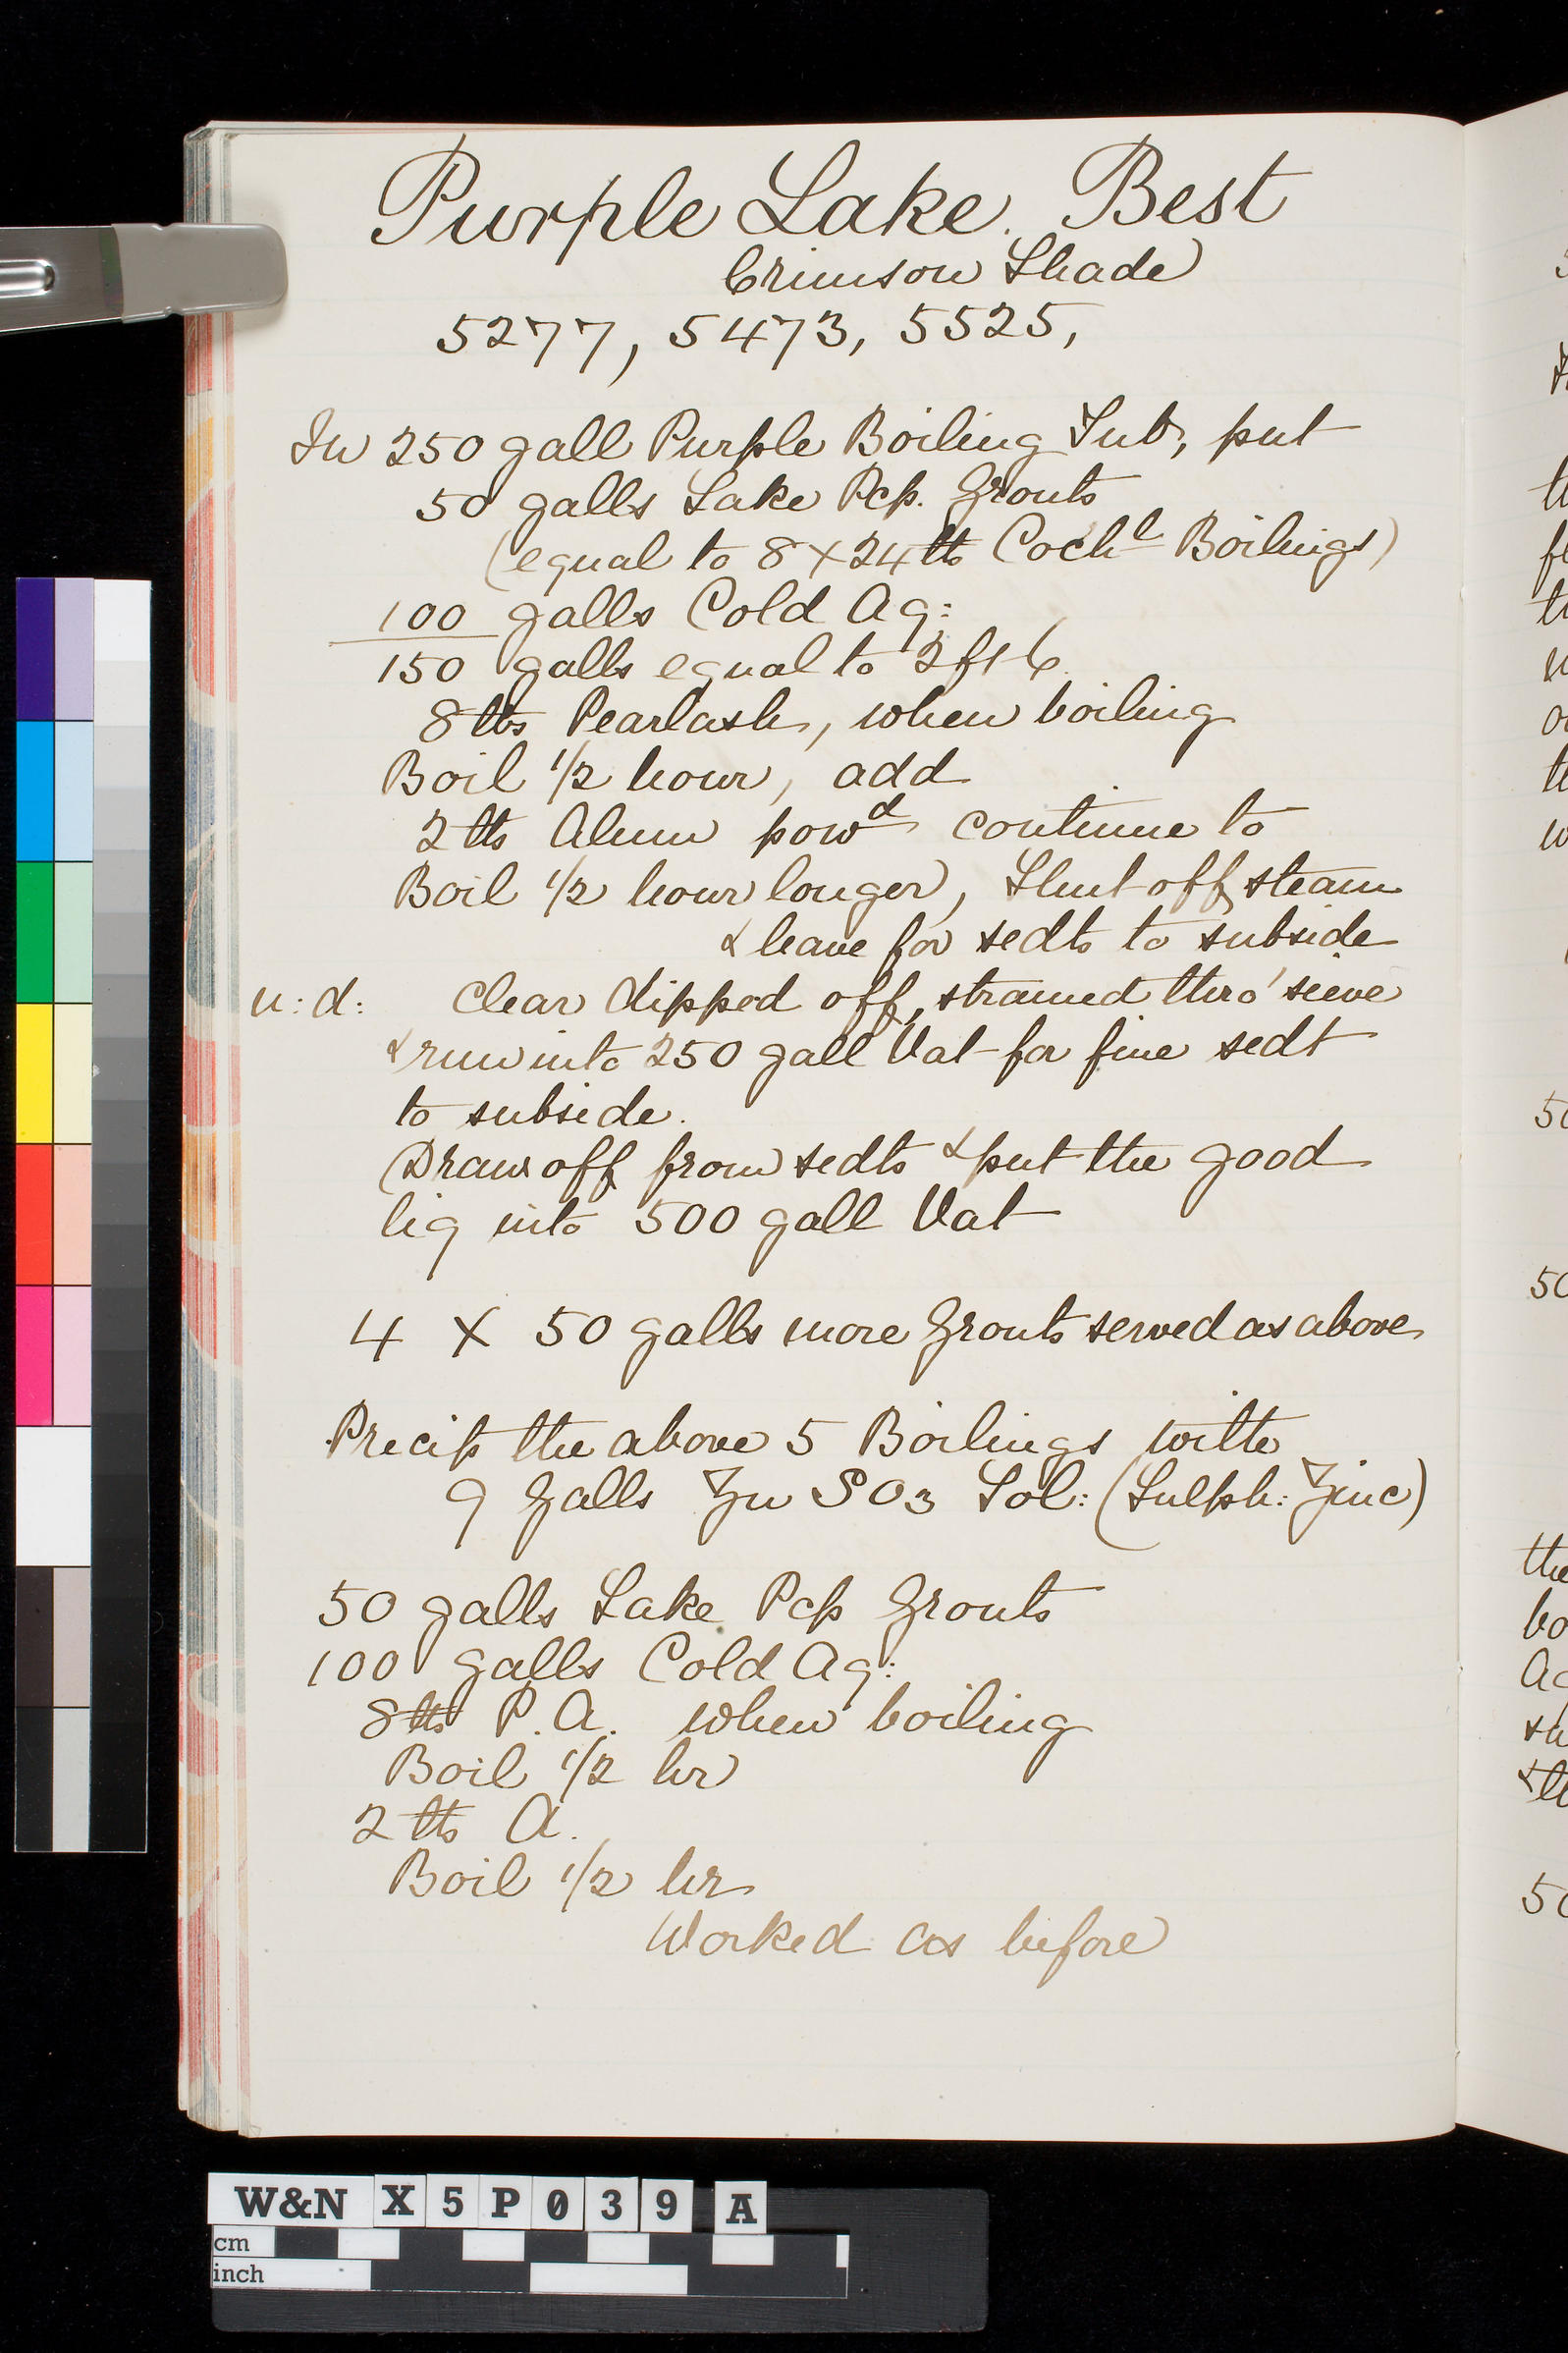 Purple Lake. Best
Crimson Shade
5277, 5473, 5525,
In 250 gall Purple Boiling Tub, put
50 galls Lake Pcp. Grouts
(equal to 8 x 24 lbs Cochl Boilings)
100 galls Cold Aq:
150 galls equal to 2 ft 6
8 lbs Pearlash, when boiling
Boil 1/2 hour, add
2 lbs Alum powd continue to
Boil 1/2 hour longer, Shut off steam
& leave for sedts to subside
n: d: Clear dipped off, strained thro' sieve
& run into 250 gall Vat for fine sedt
to subside.
Draw off from sedts & put the good
liq into 500 gall Vat
4 X 50 galls more Grouts served as above
Precip the above 5 Boilings with
9 Galls Zn SO3 Sol: (Sulph: Zinc)
50 galls Lake Pcp Grouts
100 galls Cold Aq:
8 lbs P. A. when boiling
Boil 1/2 hr
2 lbs A.
Boil 1/2 hr
Worked as before
W&N X5P039 A
cm
inch